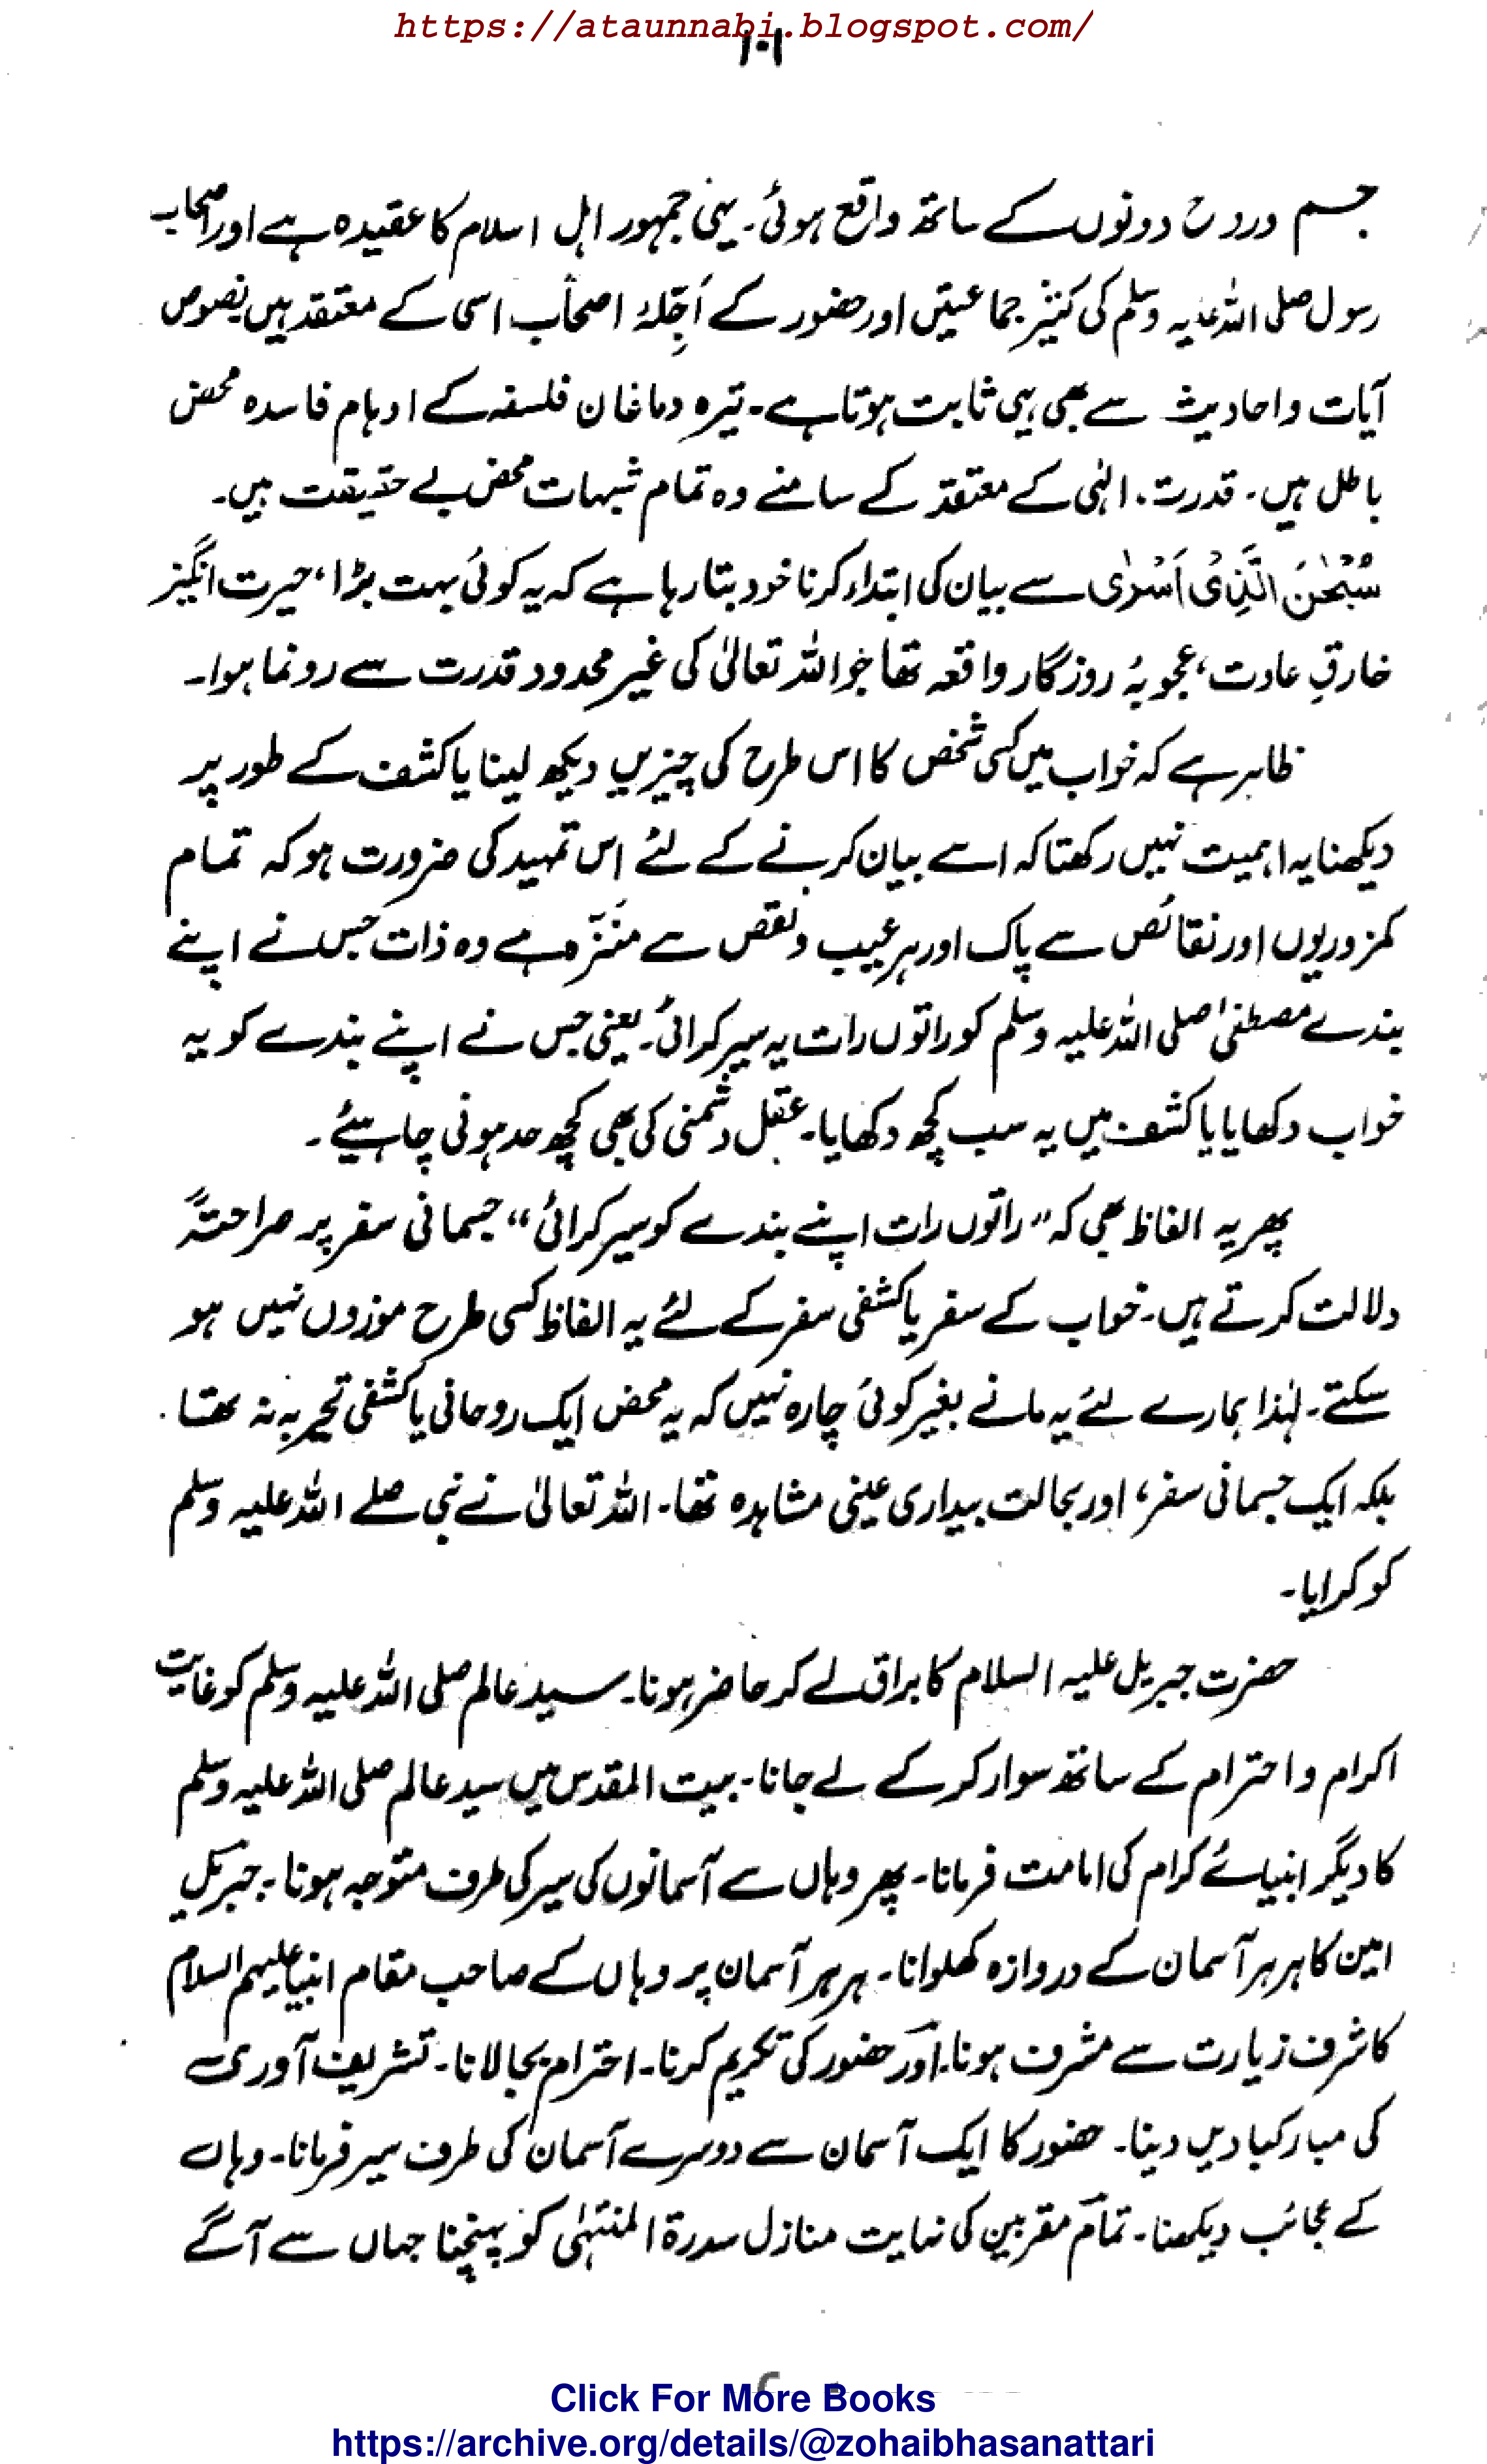 https://ataunnabi.blogspot.com/
۱۰۱
جسم وروح دونوں کے ساتھ واقع ہوئی۔ یہی جمہور اہل اسلام کا عقیدہ ہے اور اصحاب
رسول صلی اللہ علیہ وسلم کی کثیر جماعتیں اور حضور کے اَجِلّۂ اصحاب اسی کے معتقد ہیں۔ نصوص
آیات و احادیث سے بھی یہی ثابت ہوتا ہے۔ تیرہ دماغان فلسفہ کے اوہام فاسدہ محض
باطل ہیں۔ قدرت الٰہی کے معتقد کے سامنے وہ تمام شبہات محض بے حقیقت ہیں۔
سُبْحٰنَ الَّذِیْ اَسْرٰی سے بیان کی ابتداء کرنا خود بتا رہا ہے کہ یہ کوئی بہت بڑا، حیرت انگیز
خارقِ عادت، عجوبۂ روزگار واقعہ تھا جو اللہ تعالیٰ کی غیر محدود قدرت سے رونما ہوا۔
ظاہر ہے کہ خواب میں کسی شخص کا اس طرح کی چیزیں دیکھ لینا یا کشف کے طور پر
دیکھنا یہ اہمیت نہیں رکھتا کہ اسے بیان کرنے کے لئے اس تمہید کی ضرورت ہو کہ تمام
کمزوریوں اور نقائص سے پاک اور ہر عیب و نقص سے منَزّہ ہے وہ ذات جس نے اپنے
بندے مصطفیٰ صلی اللہ علیہ وسلم کو راتوں رات یہ سیر کرائی۔ یعنی جس نے اپنے بندے کو یہ
خواب دکھایا یا کشف میں یہ سب کچھ دکھایا۔ عقل دشمنی کی بھی کچھ حد ہونی چاہیئے۔
پھر یہ الفاظ بھی کہ ”راتوں رات اپنے بندے کو سیر کرائی“ جسمانی سفر پر صراحتہً
دلالت کرتے ہیں۔ خواب کے سفر یا کشفی سفر کے لئے یہ الفاظ کسی طرح موزوں نہیں ہو
سکتے۔ لہٰذا ہمارے لئے یہ مانے بغیر کوئی چارہ نہیں کہ یہ محض ایک روحانی یا کشفی تجربہ نہ تھا
بلکہ ایک جسمانی سفر، اور بحالت بیداری عینی مشاہدہ تھا۔ اللہ تعالیٰ نے نبی صلے اللہ علیہ وسلم
کو کرایا۔
حضرت جبریل علیہ السلام کا براق لے کر حاضر ہونا۔ سید عالم صلی اللہ علیہ وسلم کو غایت
اکرام و احترام کے ساتھ سوار کر کے لے جانا۔ بیت المقدس میں سید عالم صلی اللہ علیہ وسلم
کا دیگر انبیائے کرام کی امامت فرمانا۔ پھر وہاں سے آسمانوں کی سیر کی طرف متوجہ ہونا۔ جبریل
امین کا ہر ہر آسمان کے دروازہ کھلوانا۔ ہر ہر آسمان پر وہاں کے صاحب مقام انبیا علیہم السلام
کا شرف زیارت سے مشرف ہونا۔ اور حضور کی تکریم کرنا۔ احترام بجا لانا۔ تشریف آوری
کی مبارکبادیں دینا۔ حضور کا ایک آسمان سے دوسرے آسمان کی طرف سیر فرمانا۔ وہاں
کے عجائب دیکھنا۔ تمام مقربین کی نہایت منازل سدرۃ المنتہٰی کو پہنچنا جہاں سے آگے
Click For More Books
https://archive.org/details/@zohaibhasanattari